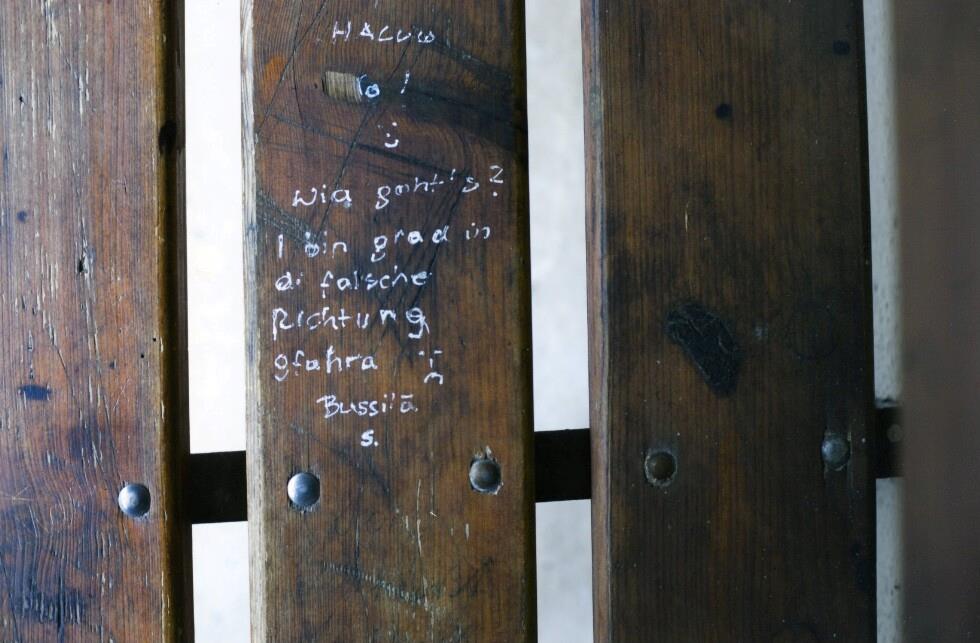 HALLO
!
Wia goht's?
I bin grad in
di falsche
Richtung
gfahra
Bussilä
S.